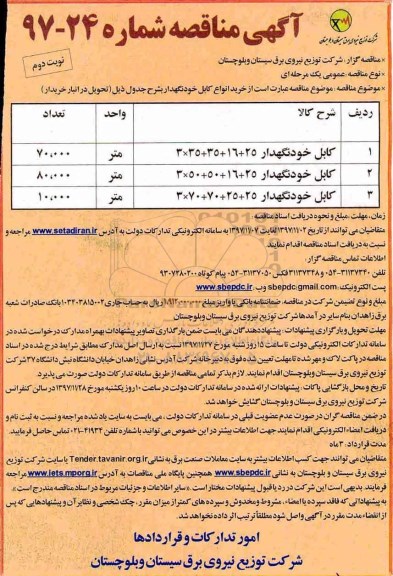 آگهی مناقصه شماره ۲۴-۹۷
شرکت توزیع نیروی برق سیستان و بلوچستان
نوبت دوم
* مناقصه گزار: شرکت توزیع نیروی برق سیستان وبلوچستان
* نوع مناقصه: عمومی یک مرحله ای
* موضوع مناقصه: موضوع مناقصه عبارت است از خرید انواع کابل خودنگهدار بشرح جدول ذیل (تحویل در انبار خریدار)
ردیف شرح کالا واحد تعداد
۱ کابل خودنگهدار ۲۵+۱۶+۳۵+۳۵×۳ متر ۷۰,۰۰۰
۲ کابل خودنگهدار ۲۵+۱۶+۵۰+۵۰×۳ متر ۸۰,۰۰۰
۳ کابل خودنگهدار ۲۵+۲۵+۷۰+۷۰×۳ متر ۱۰,۰۰۰
زمان، مهلت، مبلغ و نحوه دریافت اسناد مناقصه:
متقاضیان می توانند از تاریخ ۱۳۹۷/۱۱/۰۲ لغایت ۱۳۹۷/۱۱/۰۷ به سامانه الکترونیکی تدارکات دولت به آدرس www.setadiran.ir مراجعه و
نسبت به دریافت اسناد مناقصه اقدام نمایند.
اطلاعات تماس مناقصه گزار:
تلفن ۳۱۱۳۷۳۴۰-۰۵۴ فکس ۳۱۱۳۷۳۴۸ و ۳۱۱۳۷۰۵۰-۰۵۴ پیام کوتاه
پست الکترونیک: sbepdc@gmail.com وب: www.sbepdc.ir
مبلغ و نوع تضمین شرکت در مناقصه: ضمانتنامه بانکی یا واریز مبلغ ریال به حساب جاری ۰۱۰۳۲۰۳۸۱۵۰۰۲ بانک صادرات شعبه
برق زاهدان بنام سایر درآمدها شرکت توزیع نیروی برق سیستان وبلوچستان.
مهلت تحویل و بارگزاری پیشنهادات: پیشنهاد دهندگان می بایست ضمن بارگذاری تصاویر پیشنهادات بهمراه مدارک درخواست شده در
سامانه تدارکات الکترونیکی دولت تا ساعت ۱۵ روز شنبه مورخ ۱۳۹۷/۱۱/۲۷ نسبت به ارسال اصل مدارک مطابق شرایط درج شده در اسناد
مناقصه در پاکت لاک و مهر شده تا مهلت تعیین شده فوق به دبیرخانه شرکت آدرس نشانی زاهدان خیابان دانشگاه نبش دانشگاه ۳۷ شرکت
توزیع نیروی برق سیستان وبلوچستان اقدام نمایند. لازم بذکر تمامی مناقصه از طریق سامانه تدارکات دولت صورت می پذیرد.
تاریخ و محل بازگشایی پاکات: پیشنهادات ارائه شده در سامانه تدارکات دولت در ساعت ۱۰ روز یکشنبه مورخ ۱۳۹۷/۱۱/۲۸ در سالن کنفرانس
شرکت توزیع نیروی برق سیستان وبلوچستان گشایش خواهد شد.
در ضمن مناقصه گران در صورت عدم عضویت قبلی در سامانه تدارکات دولت، می بایست به سایت یاد شده مراجعه و نسبت به ثبت نام و
دریافت امضاء الکترونیکی اقدام نمایند جهت اطلاعات بیشتر در این خصوص می توانید با شماره تلفن ۴۱۹۳۴-۰۲۱ تماس حاصل فرمایید.
مدت قرارداد: ۳ ماه
متقاضیان می توانند جهت کسب اطلاعات بیشتر به سایت معاملات صنعت برق به نشانی Tender.tavanir.org.ir یا سایت شرکت توزیع
نیروی برق سیستان و بلوچستان به نشانی www.sbepdc.ir همچنین پایگاه ملی مناقصات به آدرس www.iets.mporg.ir مراجعه
فرمایند. بدیهی است این شرکت در رد یا قبول پیشنهادات مختار است. * سایر اطلاعات و جزئیات مربوط در اسناد مناقصه مندرج است *
به پیشنهاداتی که فاقد سپرده یا امضاء، مشروط و مخدوش و سپرده های کمتر از میزان مقرر، چک شخصی و نظایر آن و پیشنهادهایی که پس
از انقضاء مدت مقرر در آگهی واصل شود مطلقاً ترتیب اثر داده نخواهد شد.
امور تدارکات و قراردادها
شرکت توزیع نیروی برق سیستان وبلوچستان